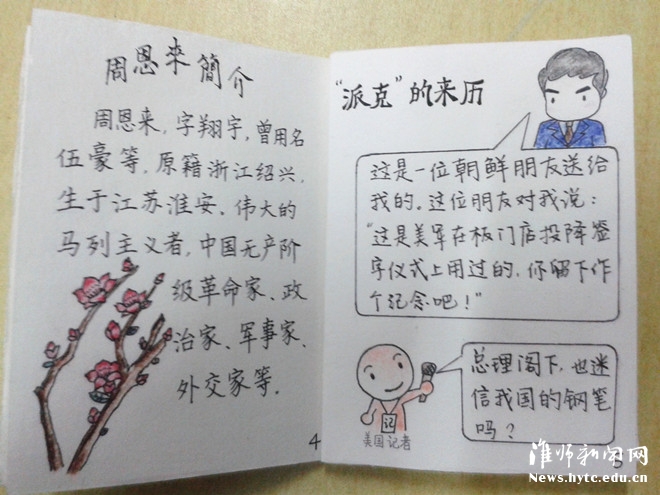 周恩来簡介
周恩来，字翔宇，曾用名
伍豪等，原籍浙江绍兴，
生于江苏淮安。伟大的
马列主义者，中国无产阶
级革命家、政
治家、军事家、
外交家等。
4
“派克”的来历
这是一位朝鲜朋友送给
我的。这位朋友对我说：
“这是美军在板门店投降签
字仪式上用过的，你留下作
个纪念吧！”
总理阁下，也迷
信我国的钢笔
吗？
记
美国记者
5
淮师新闻网
News.hytc.edu.cn